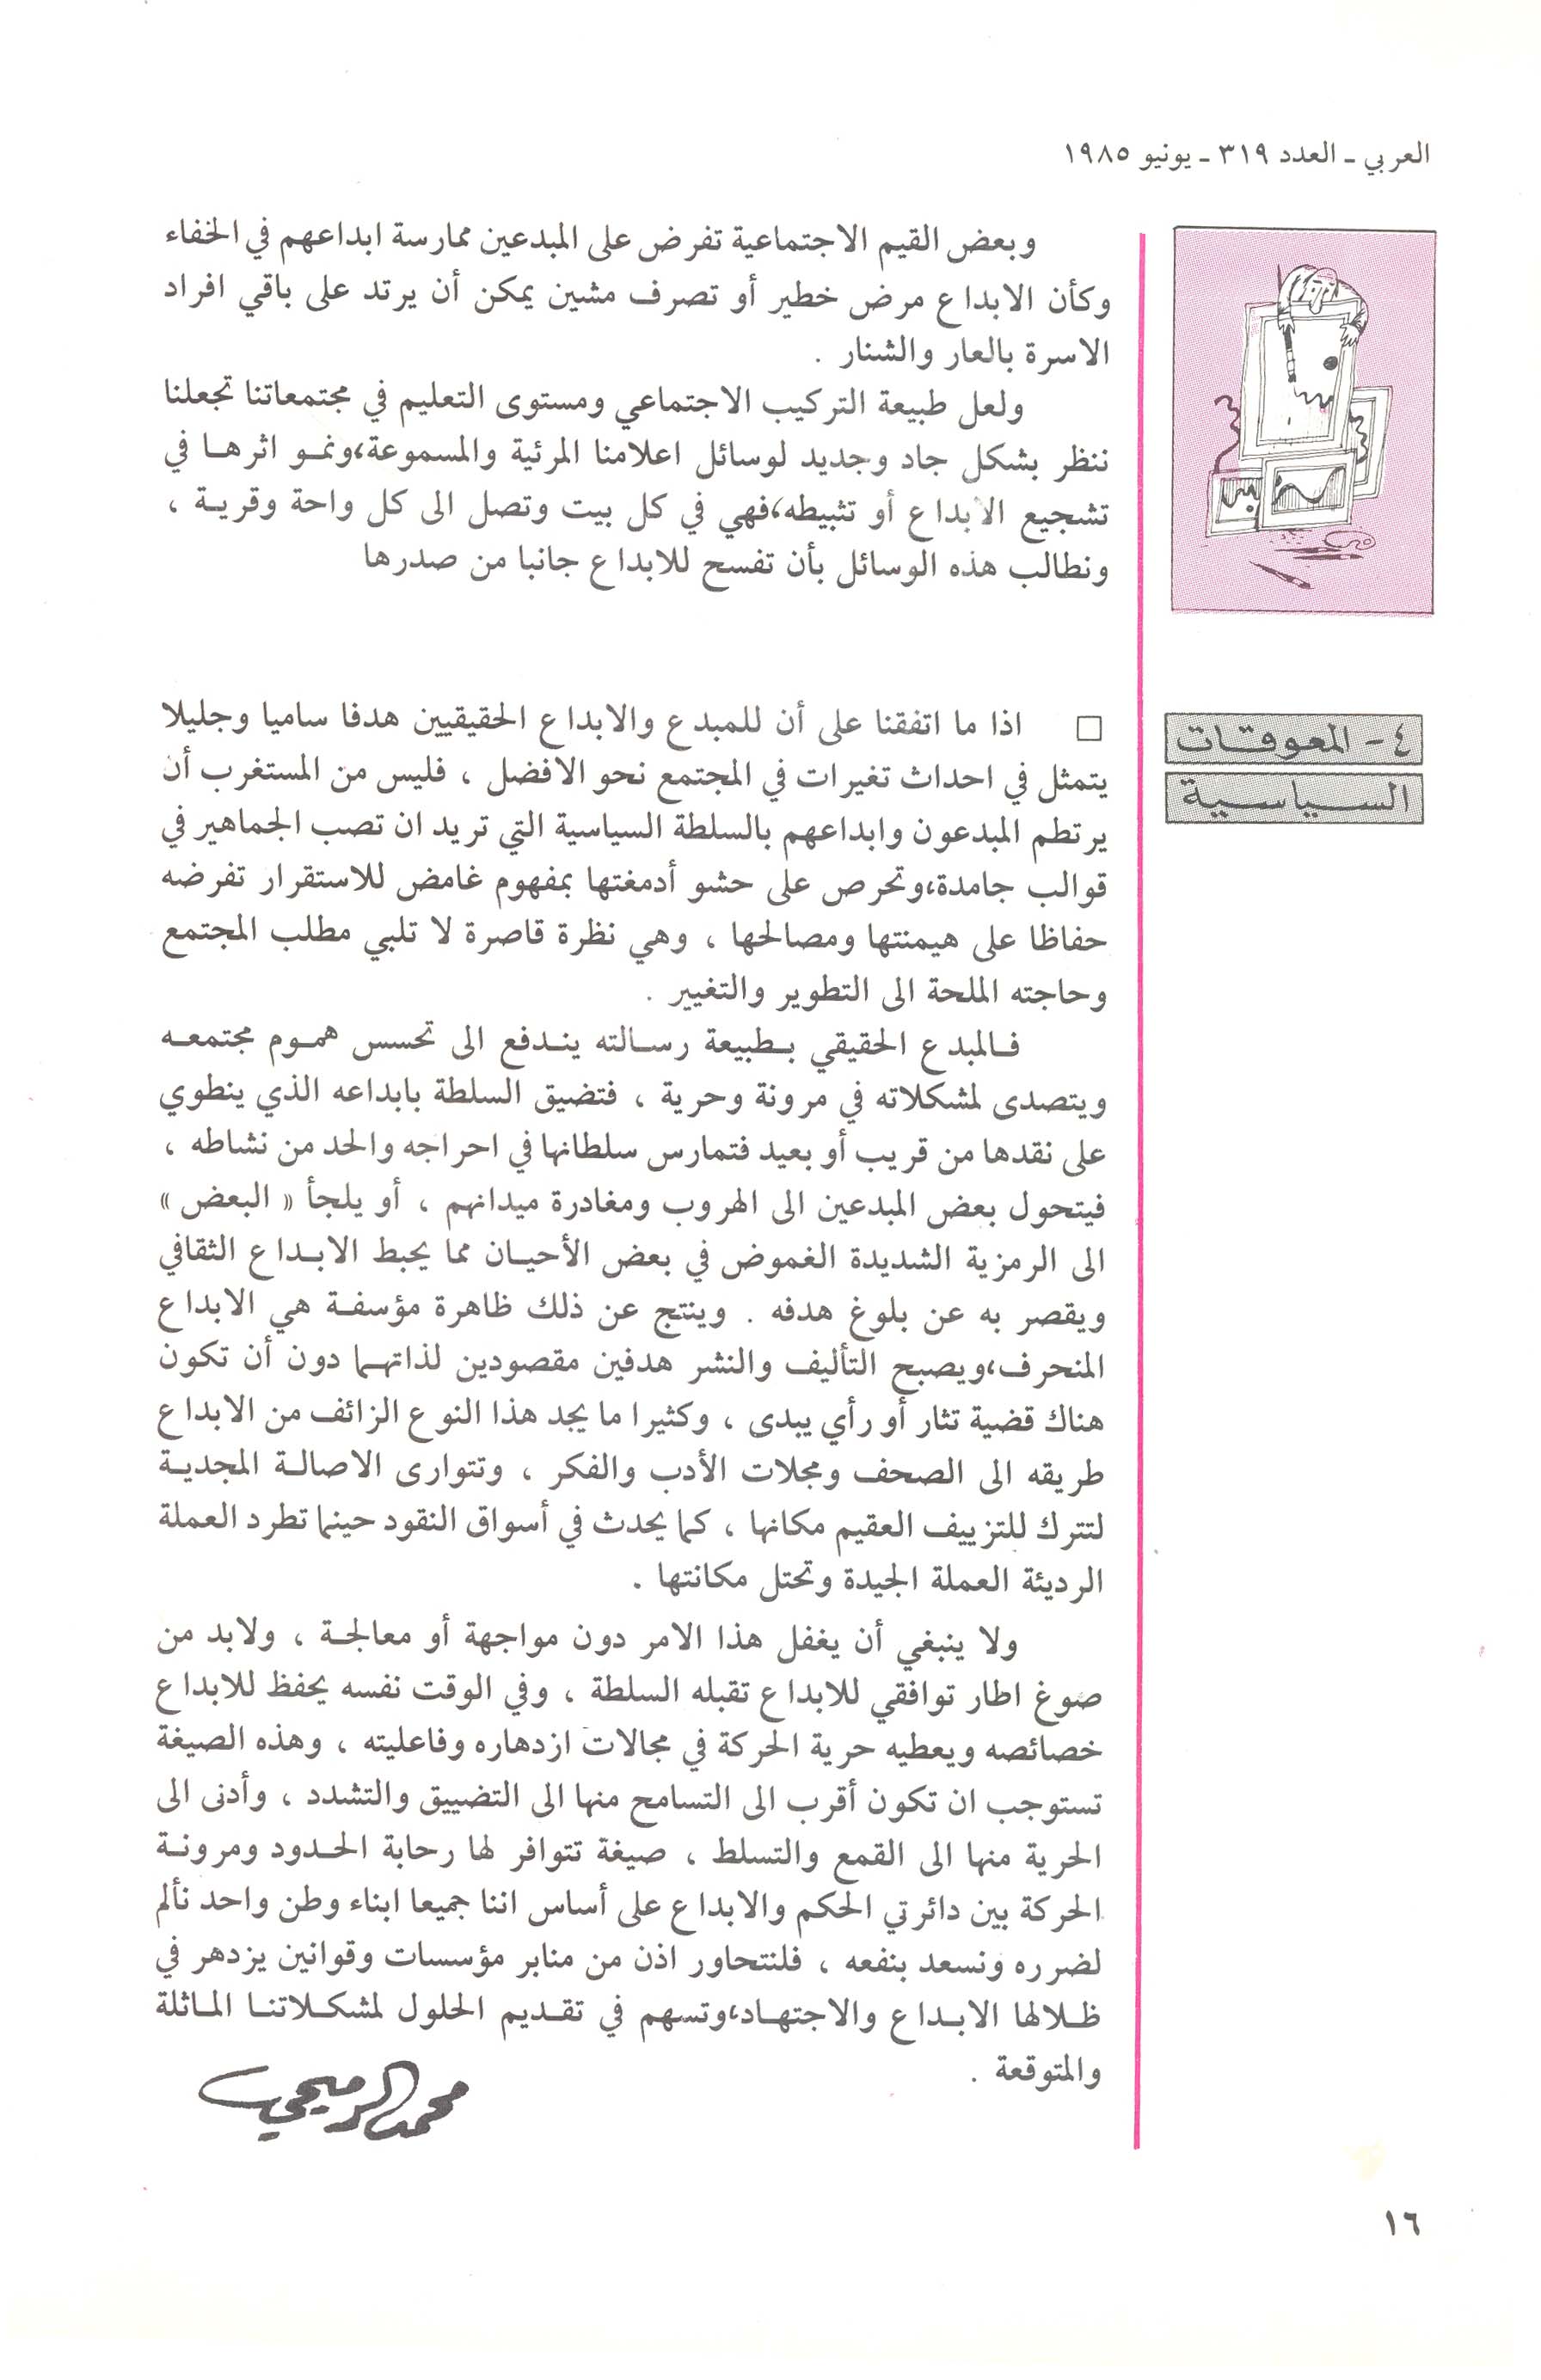 العربي - العدد ٣١٩ - يونيو ١٩٨٥
وبعض القيم الاجتماعية تفرض على المبدعين ممارسة ابداعهم في الخفاء
وكأن الابداع مرض خطير أو تصرف مشين يمكن أن يرتد على باقي افراد
الاسرة بالعار والشنار .
ولعل طبيعة التركيب الاجتماعي ومستوى التعليم في مجتمعاتنا تجعلنا
ننظر بشكل جاد وجديد لوسائل اعلامنا المرئية والمسموعة، ونمو اثرها في
تشجيع الابداع أو تثبيطه، فهي في كل بيت وتصل الى كل واحة وقرية ،
ونطالب هذه الوسائل بأن تفسح للابداع جانبا من صدرها
٤- المعوقات
السياسية
□ اذا ما اتفقنا على أن للمبدع والابداع الحقيقيين هدفا ساميا وجليلا
يتمثل في احداث تغيرات في المجتمع نحو الافضل ، فليس من المستغرب أن
يرتطم المبدعون وابداعهم بالسلطة السياسية التي تريد ان تصب الجماهير في
قوالب جامدة، وتحرص على حشو أدمغتها بمفهوم غامض للاستقرار تفرضه
حفاظا على هيمنتها ومصالحها ، وهي نظرة قاصرة لا تلبي مطلب المجتمع
وحاجته الملحة الى التطوير والتغيير .
فالمبدع الحقيقي بطبيعة رسالته يندفع الى تحسس هموم مجتمعه
ويتصدى لمشكلاته في مرونة وحرية ، فتضيق السلطة بابداعه الذي ينطوي
على نقدها من قريب أو بعيد فتمارس سلطانها في احراجه والحد من نشاطه ،
فيتحول بعض المبدعين الى الهروب ومغادرة ميدانهم ، أو يلجأ « البعض »
الى الرمزية الشديدة الغموض في بعض الأحيان مما يحبط الابداع الثقافي
ويقصر به عن بلوغ هدفه . وينتج عن ذلك ظاهرة مؤسفة هي الابداع
المنحرف، ويصبح التأليف والنشر هدفين مقصودين لذاتهما دون أن تكون
هناك قضية تثار أو رأي يبدى ، وكثيرا ما يجد هذا النوع الزائف من الابداع
طريقه الى الصحف ومجلات الأدب والفكر ، وتتوارى الاصالة المجدية
لتترك للتزييف العقيم مكانها ، كما يحدث في أسواق النقود حينما تطرد العملة
الرديئة العملة الجيدة وتحتل مكانتها .
ولا ينبغي أن يغفل هذا الامر دون مواجهة أو معالجة ، ولابد من
صوغ اطار توافقي للابداع تقبله السلطة ، وفي الوقت نفسه يحفظ للابداع
خصائصه ويعطيه حرية الحركة في مجالات ازدهاره وفاعليته ، وهذه الصيغة
تستوجب ان تكون أقرب الى التسامح منها الى التضييق والتشدد ، وأدنى الى
الحرية منها الى القمع والتسلط ، صيغة تتوافر لها رحابة الحدود ومرونة
الحركة بين دائرتي الحكم والابداع على أساس اننا جميعا ابناء وطن واحد نألم
لضرره ونسعد بنفعه ، فلنتحاور اذن من منابر مؤسسات وقوانين يزدهر في
ظلالها الابداع والاجتهاد، وتسهم في تقديم الحلول لمشكلاتنا الماثلة
والمتوقعة .
محمد الرميحي
١٦